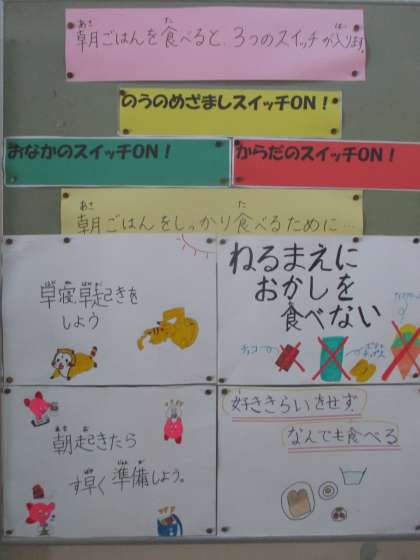 朝ごはんを食べると、3つのスイッチが入ります。
のうのめざましスイッチON!
おなかのスイッチON!
からだのスイッチON!
朝ごはんをしっかり食べるために…
早寝早起きを
しよう
ねるまえに
おかしを
食べない
チョコ
朝起きたら
す早く準備しよう。
好ききらいをせず
なんでも食べる